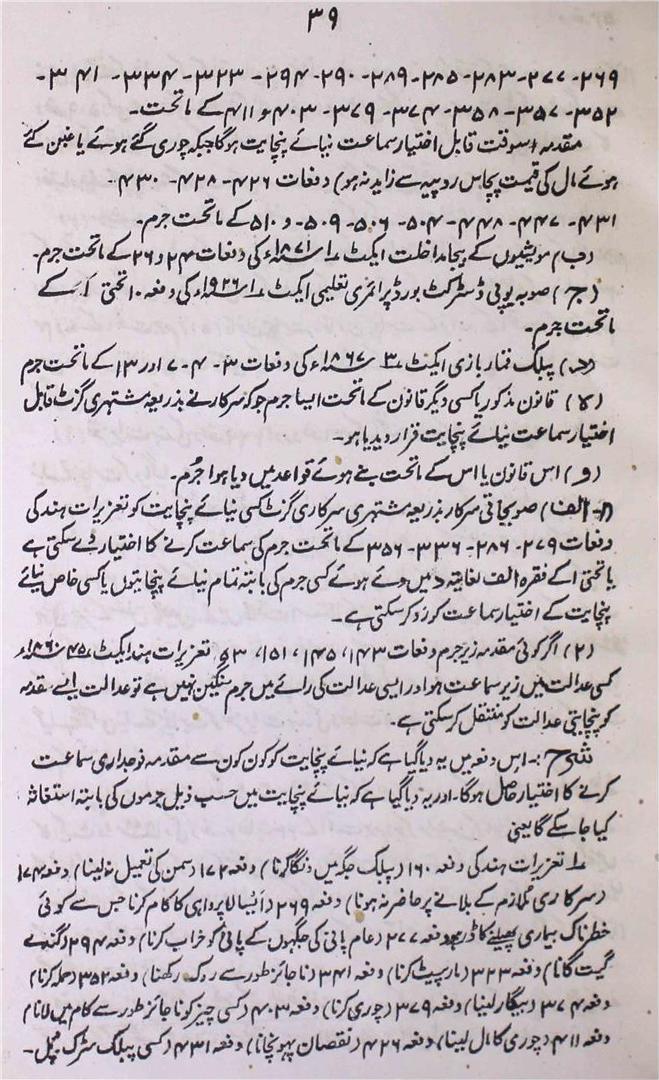 ۳۹
۲۶۹-۲۷۷-۲۸۳-۲۸۵-۲۸۹-۲۹۰-۲۹۴-۳۲۳-۳۳۴-۳۴۱-
۳۵۲-۳۵۷-۳۵۸-۳۷۴-۳۷۹-۴۰۳ و ۴۱۱ کے ماتحت۔
مقدمہ اسوقت قابل اختیار سماعت نیائے پنچایت ہوگا جبکہ چوری گئے ہوئے یا غبن کئے
ہوئے مال کی قیمت پچاس روپیہ سے زاید نہ ہو) دفعات ۴۲۶-۴۲۸-۴۳۰-
۴۳۱-۴۴۷-۴۴۸-۵۰۴-۵۰۶-۵۰۹- و ۵۱۰ کے ماتحت جرم۔
(ب) مویشیوں کے بیجا مداخلت ایکٹ ۱ ۱۸۷۱ء کی دفعات ۲۴ و ۲۶ کے ماتحت جرم۔
(ج) صوبہ یوپی ڈسٹرکٹ بورڈ پرائمری تعلیمی ایکٹ ۱ ۱۹۲۶ء کی دفعہ ۱۰ تحتی ۱ کے
ماتحت جرم۔
(د) پبلک قمار بازی ایکٹ ۳ ۱۸۶۷ء کی دفعات ۳-۴-۷ اور ۱۳ کے ماتحت جرم
(ہ) قانون مذکور یا کسی دیگر قانون کے ماتحت ایسا جرم جو کہ سرکار نے بذریعہ مشتہری گزٹ قابل
اختیار سماعت نیائے پنچایت قرار دیدیا ہو۔
(و) اس قانون یا اس کے ماتحت بنے ہوئے قواعد میں دیا ہوا جرم۔
الف) صوبجاتی سرکار بذریعہ مشتہری سرکاری گزٹ کسی نیائے پنچایت کو تعزیرات ہند کی
دفعات ۲۷۹-۲۸۶-۳۳۶-۳۵۶ کے ماتحت جرم کی سماعت کرنے کا اختیار دے سکتی ہے
یا تحتی ۱ کے فقرہ الف لغایتہ د میں دئے ہوئے کسی جرم کی بابتہ تمام نیائے پنچایتوں یا کسی خاص نیائے
پنچایت کے اختیار سماعت کو رد کر سکتی ہے۔
(۲) اگر کوئی مقدمہ زیر جرم دفعات ۱۴۳، ۱۴۵، ۱۵۱، تعزیرات ہند ایکٹ ۴۵ ۱۸۶۰ء
کسی عدالت میں زیر سماعت ہو اور ایسی عدالت کی رائے میں جرم سنگین نہیں ہے تو عدالت ایسے مقدمہ
کو پنچایتی عدالت کو منتقل کر سکتی ہے۔
شرح :- اس دفعہ میں یہ دیا گیا ہے کہ نیائے پنچایت کو کون کون سے مقدمہ فوجداری سماعت
کرنے کا اختیار حاصل ہوگا۔ اور یہ دیا گیا ہے کہ نیائے پنچایت میں حسب ذیل جرموں کی بابتہ استغاثہ
کیا جا سکے گا یعنی
۱ تعزیرات ہند کی دفعہ ۱۶۰ (پبلک جگہ میں دنگا کرنا) دفعہ ۱۷۲ (سمن کی تعمیل نہ لینا) دفعہ ۱۷۴
(سرکاری ملازم کے بلانے پر حاضر نہ ہونا) دفعہ ۲۶۹ (ایسا لاپرواہی کا کام کرنا جس سے کوئی
خطرناک بیماری پھیلنے کا ڈر ہو) دفعہ ۲۷۷ (عام پانی کی جگہوں کے پانی کو خراب کرنا) دفعہ ۲۹۴ (گندے
گیت گانا) دفعہ ۳۲۳ (مارپیٹ کرنا) دفعہ ۳۴۱ (ناجائز طور سے روک رکھنا) دفعہ ۳۵۲ (حملہ کرنا)
دفعہ ۳۷۴ (بیگار لینا) دفعہ ۳۷۹ (چوری کرنا) دفعہ ۴۰۳ (کسی چیز کو ناجائز طور سے کام میں لانا)
دفعہ ۴۱۱ (چوری کا مال لینا) دفعہ ۴۲۶ (نقصان پہونچانا) دفعہ ۴۳۱ (کسی پبلک سڑک، پل۔